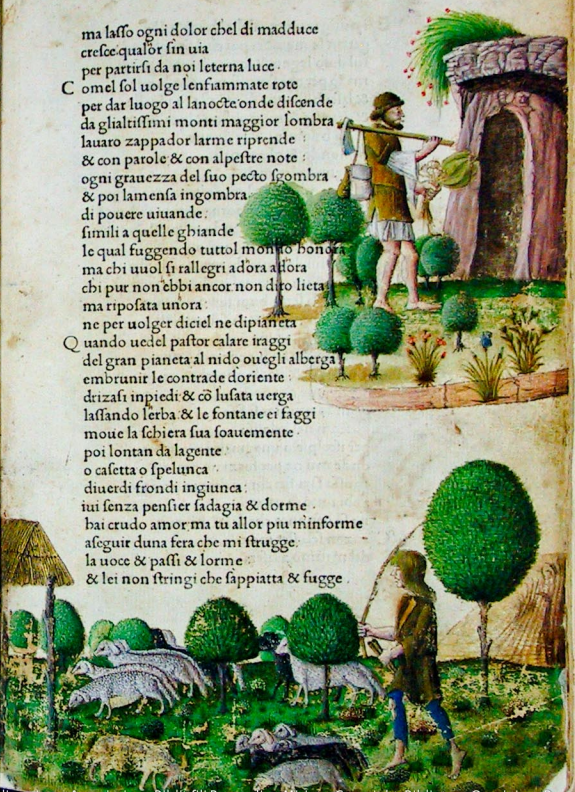 ma lasso ogni dolor chel di madduce
cresce qualor sin uia
per partirsi da noi leterna luce.
Comel sol uolge lenfiammate rote
per dar luogo al lanocte onde discende
da glialtissimi monti maggior lombra
lauaro zappador larme riprende
& con parole & con alpestre note :
ogni grauezza del suo pecto sgombra
& poi lamensa ingombra
di pouere uiuande:
simili a quelle ghiande
le qual fuggendo tuttol mondo honora
ma chi uuol si rallegri adora adora
chi pur non ebbi ancor non dico lieta
ma riposata un'ora :
ne per uolger diciel ne dipianeta
Quando uedel pastor calare iraggi
del gran pianeta al nido ou'egli alberga
embrunir le contrade doriente :
drizasi inpiedi & cō lusata uerga
lassando lerba & le fontane ei faggi
moue la schiera sua soauemente .
poi lontan da lagente
o casetta o spelunca
diuerdi frondi ingiunca :
iui senza pensier sadagia & dorme .
hai crudo amor ma tu allor piu minforme
aseguir duna fera che mi strugge.
la uoce & passi & lorme :
& lei non stringi che sappiatta & fugge .